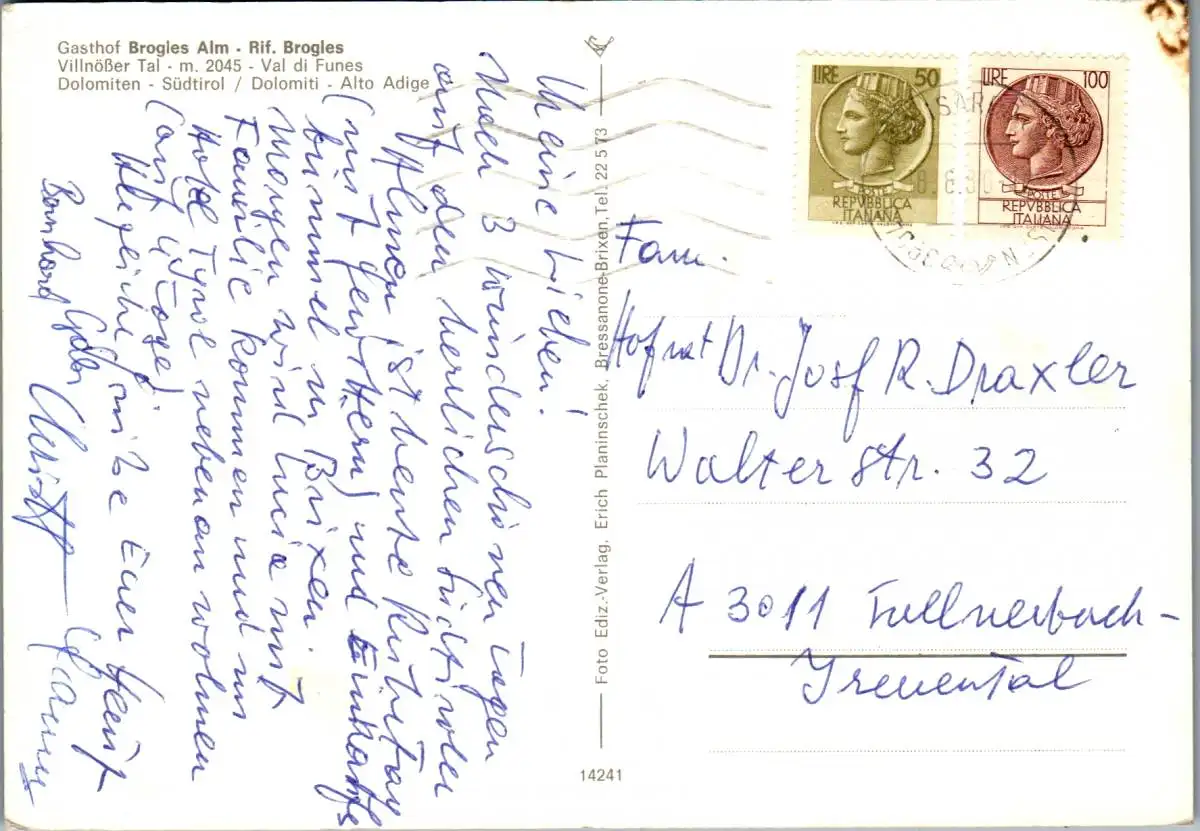 Gasthof Brogles Alm - Rif. Brogles
Villnößer Tal - m. 2045 - Val di Funes
Dolomiten - Südtirol / Dolomiti - Alto Adige
Meine Lieben!
Nach 3 wunderschönen Tagen
auf den herrlichen Südtiroler
Almen ist heute Ruhetag
(mit Gewittern) und Einkaufs
bummel in Brixen.
Morgen wird Lucia mit
Familie kommen und im
Hotel Tyrol nebenan wohnen
(auf 4 Tage).
Herzliche Grüße Euer Heinz
Foto Ediz.-Verlag. Erich Planinschek, Bressanone-Brixen, Tel. 22573
14241
LIRE 50
POSTE
REPVBBLICA
ITALIANA
LIRE 100
POSTE
REPVBBLICA
ITALIANA
Fam.
Hofrat Dr. Josef R. Draxler
Walterstr. 32
A 3011 Tullnerbach-
Irenental